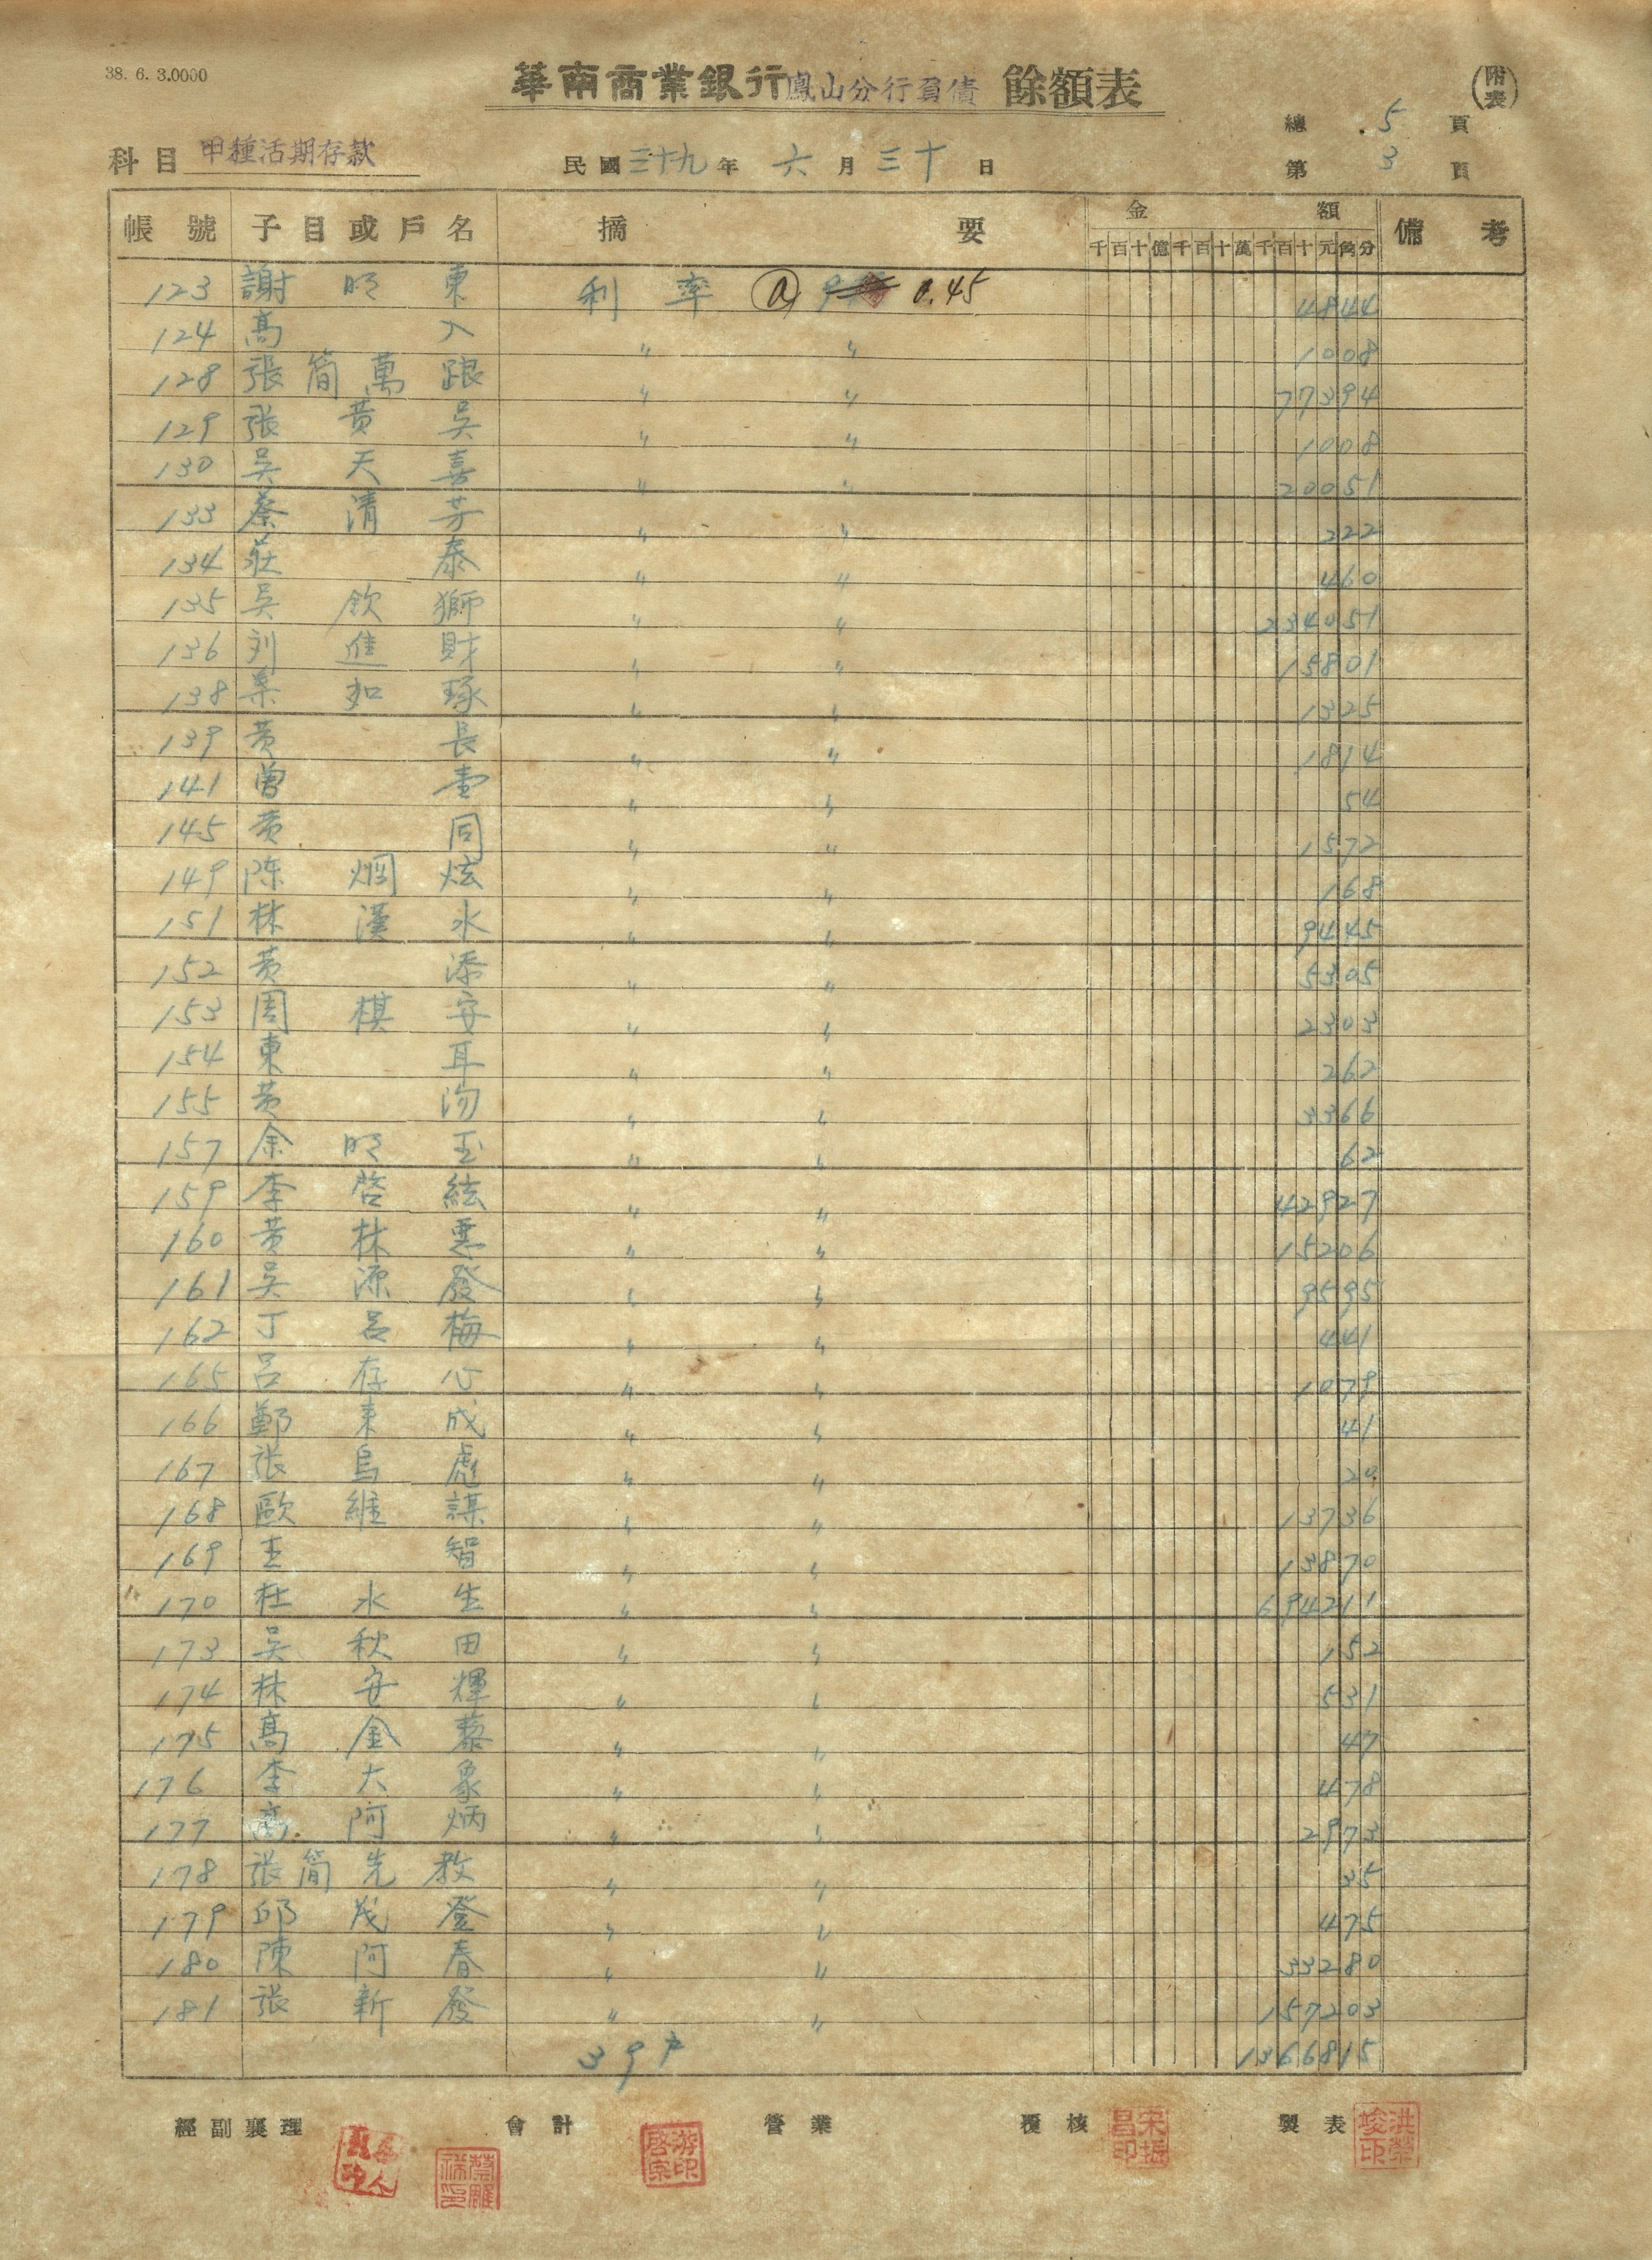 38. 6. 3.0000
華南商業銀行鳳山分行負債 餘額表
附表
總 5 頁
科目 甲種活期存款 民國三十九年 六月三十日
第 3 頁
帳號 子目或戶名 摘要 金額 備考
千百十億千百十萬千百十元角分
123 謝明東 利率 @ 0.45 4844
124 高入 〃 〃 1008
128 張簡萬跟 〃 〃 77394
129 張黃吳 〃 〃 1008
130 吳天喜 〃 〃 20051
133 蔡清芳 〃 〃 222
134 莊泰 〃 〃 460
135 吳欽獅 〃 〃 234051
136 刘進財 〃 〃 15801
138 如琢 〃 〃 1325
139 黃長 〃 〃 1814
141 曾 〃 〃 54
145 黃同 〃 〃 1572
149 陈烟炫 〃 〃 168
151 林漢水 〃 〃 9445
152 黃添 〃 〃 5305
153 周棋安 〃 〃 2303
154 東耳 〃 〃 262
155 黃 〃 〃 3366
157 余明玉 〃 〃 62
159 李啓絃 〃 〃 42927
160 黃林悪 〃 〃 15206
161 吳源發 〃 〃 9595
162 丁呂梅 〃 〃 441
165 呂存心 〃 〃 1079
166 鄭来成 〃 〃 41
167 張烏彪 〃 〃 20
168 歐維謀 〃 〃 13736
169 王智 〃 〃 13870
170 杜水生 〃 〃 694211
173 吳秋田 〃 〃 152
174 林安輝 〃 〃 531
175 高金藜 〃 〃 47
176 李大象 〃 〃 478
177 高阿炳 〃 〃 2973
178 張簡先教 〃 〃 35
179 邱茂登 〃 〃 475
180 陳阿春 〃 〃 33280
181 張新發 〃 〃 157203
39戶 1366815
經副襄理 會計 營業 覆核 製表
游印啓宗
宋振昌印
洪榮竣印